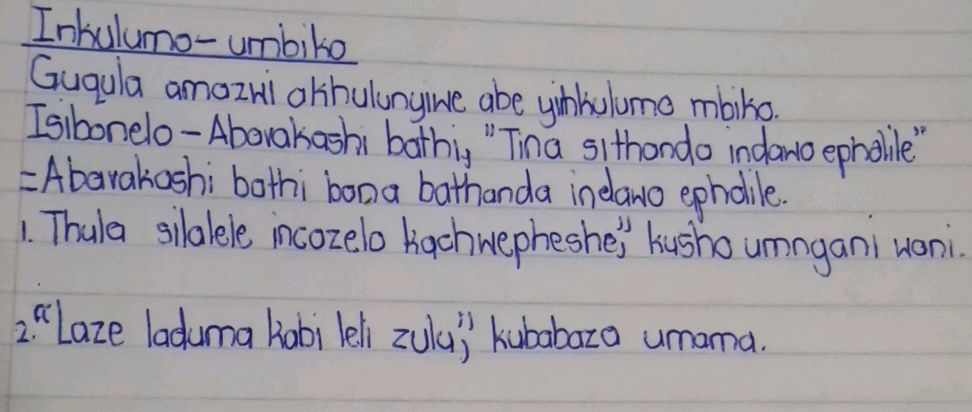 Inkulumo-umbiko
Guqula amazwi akhulunyiwe abe yinkulumo mbiko.
Isibonelo - Abavakashi bathi, "Tina sithanda indawo epholile"
= Abavakashi bathi bona bathanda indawo epholile.
1. Thula silalele incozelo kachwepheshe," kusho umngani wami.
2. "Laze laduma kabi leli zulu", kubabaza umama.